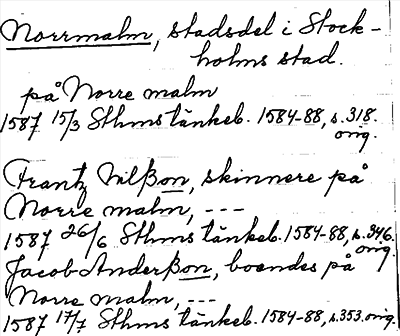 Norrmalm, stadsdel i Stock-
holms stad.
på Norre malm
1587 15/3 Sthms tänkeb. 1584-88, s. 318.
orig.
Frantz Nilßon, skinnere på
Norre malm, ---
1587 26/6 Sthms tänkeb. 1584-88, s. 346.
orig.
Jacob Anderßon, boendes på
Norre malm, ---
1587 17/7 Sthms tänkeb. 1584-88, s. 353. orig.